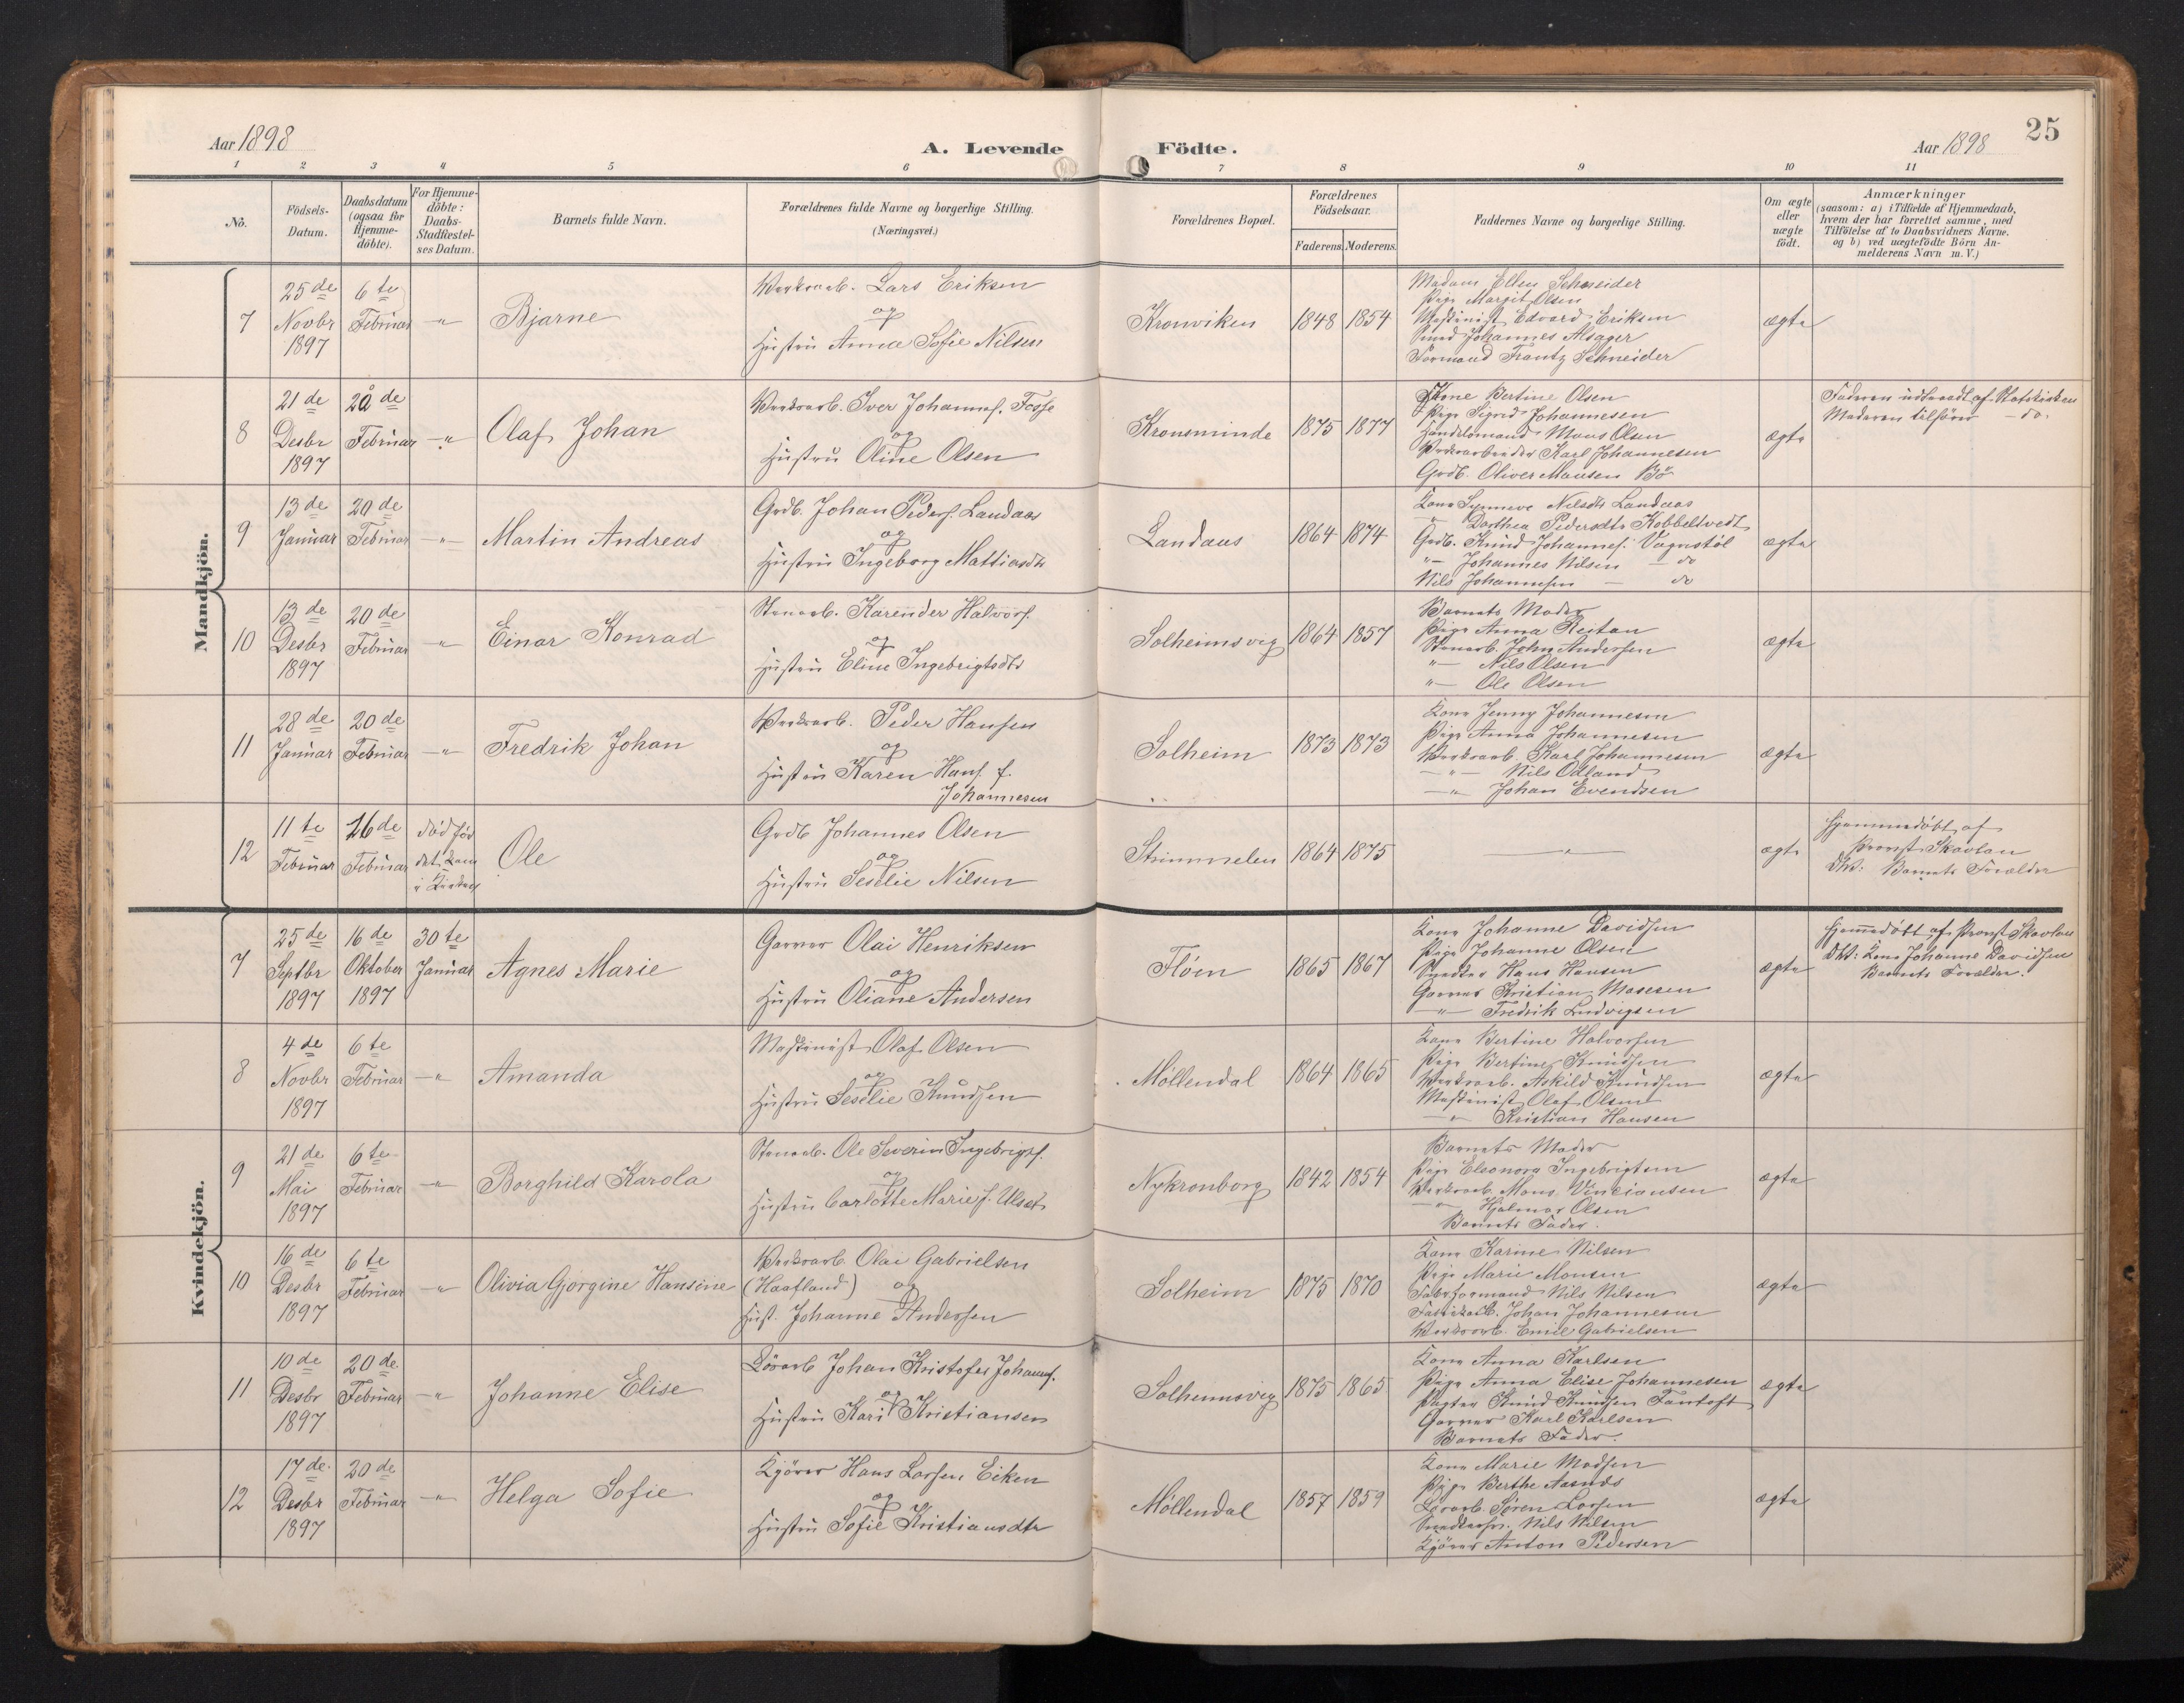 Aar 1898
A. Levende Födte.
Aar 1898
25
1 2 3 4 5 6 7 8 9 10 11
No.
Födsels-
Datum.
Daabsdatum
(ogsaa for
Hjemme-
döbte).
For Hjemme-
döbte:
Daabs-
Stadfæstel-
ses Datum.
Barnets fulde Navn.
Forældrenes fulde Navne og borgerlige Stilling.
(Næringsvei.)
Forældrenes Bopæl.
Forældrenes
Födselsaar.
Faderens. Moderens.
Faddernes Navne og borgerlige Stilling.
Om ægte
eller
uægte
födt.
Anmærkninger
(saasom: a) i Tilfælde af Hjemmedaab,
hvem der har forrettet samme, med
Tilföielse af to Daabsvidners Navne.
og b) ved uægtefödte Börn An-
melderens Navn m. V.)
Mandkjön.
7
25de
Novbr
1897
6te
Februar
-"-
Bjarne
Verksarb. Lars Eriksen
og
Hustru Anna Sofie Nilsen
Kronviken
1848 1854
Madam Ellen Schneider
Pige Margit Olsen
Maskinist Edvard Eriksen
Smed Johannes Alsager
Formand Frantz Schneider
ægte
8
21de
Desbr
1897
20de
Februar
-"-
Olaf Johan
Verksarb. Iver Johannes. Fosse
og
Hustru Oline Olsen
Kronsminde
1875 1877
Kone Bertine Olsen
Pige Sigrid Johannesen
Handelsmand Mons Olsen
Verksarbeider Karl Johannesen
Grdb. Oliver Mansen Bö
ægte
Faderen udtraadt af Statskirken
Moderen tilhörer - do.
9
13de
Januar
20de
Februar
-"-
Martin Andreas
Grdb. Johan Peders. Landaas
og
Hustru Ingeborg Mattiasdtr
Landaas
1864 1874
Kone Synneve Nilsdtr Landaas
" Dorthea Pedersdtr Kobbeltvedt
Grdb. Knud Johannes. Vognstöl
"- Johannes Nilsen - do
Nils Johannesen - do
ægte
10
13de
Desbr
1897
20de
Februar
-"-
Einar Konrad
Stenarb. Karender Halvors.
og
Hustru Eline Ingebrigtsdtr
Solheimsvig
1864 1857
Barnets Moder
Pige Anna Reitan
Stenarb. John Andersen
"- Nils Olsen
"- Ole Olsen
ægte
11
28de
Januar
20de
Februar
-"-
Fredrik Johan
Verksarb. Peder Hansen
og
Hustru Karen Hans. f.
Johannesen
Solheim
1873 1873
Kone Jenny Johannesen
Pige Anna Johannesen
Verksarb. Karl Johannesen
-"- Nils Odland
-"- Johan Evendsen
ægte
12
11te
Februar
16de
Februar
död för
det kom
i Kirken
Ole
Grdb Johannes Olsen
og
Hustru Seselie Nilsen
Strimmelen
1864 1875
-"-
ægte
Hjemmedöbt af
Provst Skavlan
DV: Barnets Forælder
Kvindekjön.
7
25de
Septbr
1897
16de
Oktober
1897
30te
Januar
Agnes Marie
Garver Olai Henriksen
og
Hustru Oliane Andersen
Flöen
1865 1867
Kone Johanne Davidsen
Pige Johanne Olsen
Snedker Hans Hansen
Garver Kristian Masesen
-"- Fredrik Ludvigsen
ægte
Hjemmedöbt af Provst Skavlan
DV: Kone Johanne Davidsen
Barnets Forælder.
8
4de
Novbr
1897
6te
Februar
-"-
Amanda
Maskinist Olaf Olsen
og
Hustru Seselie Knudsen
Möllendal
1864 1865
Kone Bertine Halvorsen
Pige Bertine Knudsen
Verksarb. Askild Knudsen
Maskinist Olaf Olsen
-"- Kristian Hansen
ægte
9
21de
Mai
1897
6te
Februar
-"-
Borghild Karola
Stenarb. Ole Severin Ingebrigs.
og
Hustru Carlotte Marie f. Ulset
Nykronborg
1842 1854
Barnets Moder
Pige Eleonora Ingebrigtsen
Verksarb. Mons Vinciansen
-"- Hjalmar Olsen
Barnets Fader.
ægte
10
16de
Desbr
1897
6te
Februar
-"-
Olivia Gjorgine Hansine
Verksarb. Olai Gabrielsen
(Haafland) og
Hust. Johanne Andersen
Solheim
1875 1870
Kone Karine Nilsen
Pige Marie Monsen
Fabrformand Nils Nilsen
Fabrikarb. Johan Johannesen
Verksarb. Emil Gabrielsen
ægte
11
10de
Desbr
1897
20de
Februar
-"-
Johanne Elise
Lösarb Johan Kristofer Johans.
og
Hustru Kari Kristiansen
Solheimsvig
1875 1865
Kone Anna Karlsen
Pige Anna Elise Johannesen
Pagter Knud Knudsen Fantoft
Garver Karl Karlsen
Barnets Fader.
ægte
12
17de
Desbr
1897
20de
Februar
-"-
Helga Sofie
Kjörer Hans Larsen Eiken
og
Hustru Sofie Kristiansdtr
Möllendal
1857 1859
Kone Marie Madsen
Pige Berthe Aasnes
Lösarb. Sören Larsen
Snedkersv. Nils Nilsen
Kjörer Anton Pedersen
ægte